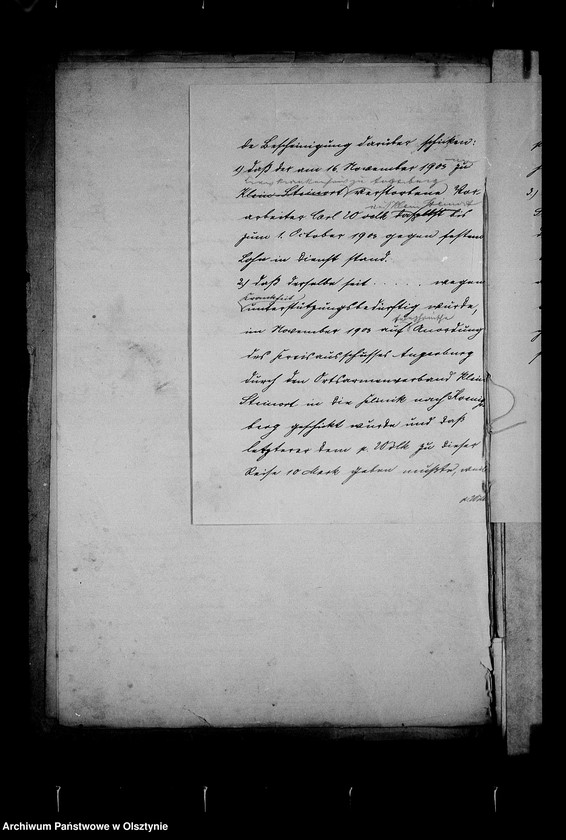 de Bescheinigung darüber schicken:
1) daß der am 16. November 1903 zu
Krankenhaus zu Angerburg
Klein Steinort verstorbene Vor-
in Klein Steinort
arbeiter Carl bis
zum 1. October 1903 gegen festen
Lohn in Dienst stand.
2) daß derselbe seit . . . . . . wegen
Krankheit
unterstützungsbedürftig wurde,
im November 1903 auf Anordnung
des Kreisausschusses Angerburg
durch den Ortsarmenverband Klein
Steinort in die Klinik nach Koenigs
berg geschickt wurde und daß
letzterer dem p. zu dieser
Reise 10 Mark geben mußte,
Archiwum Państwowe w Olsztynie